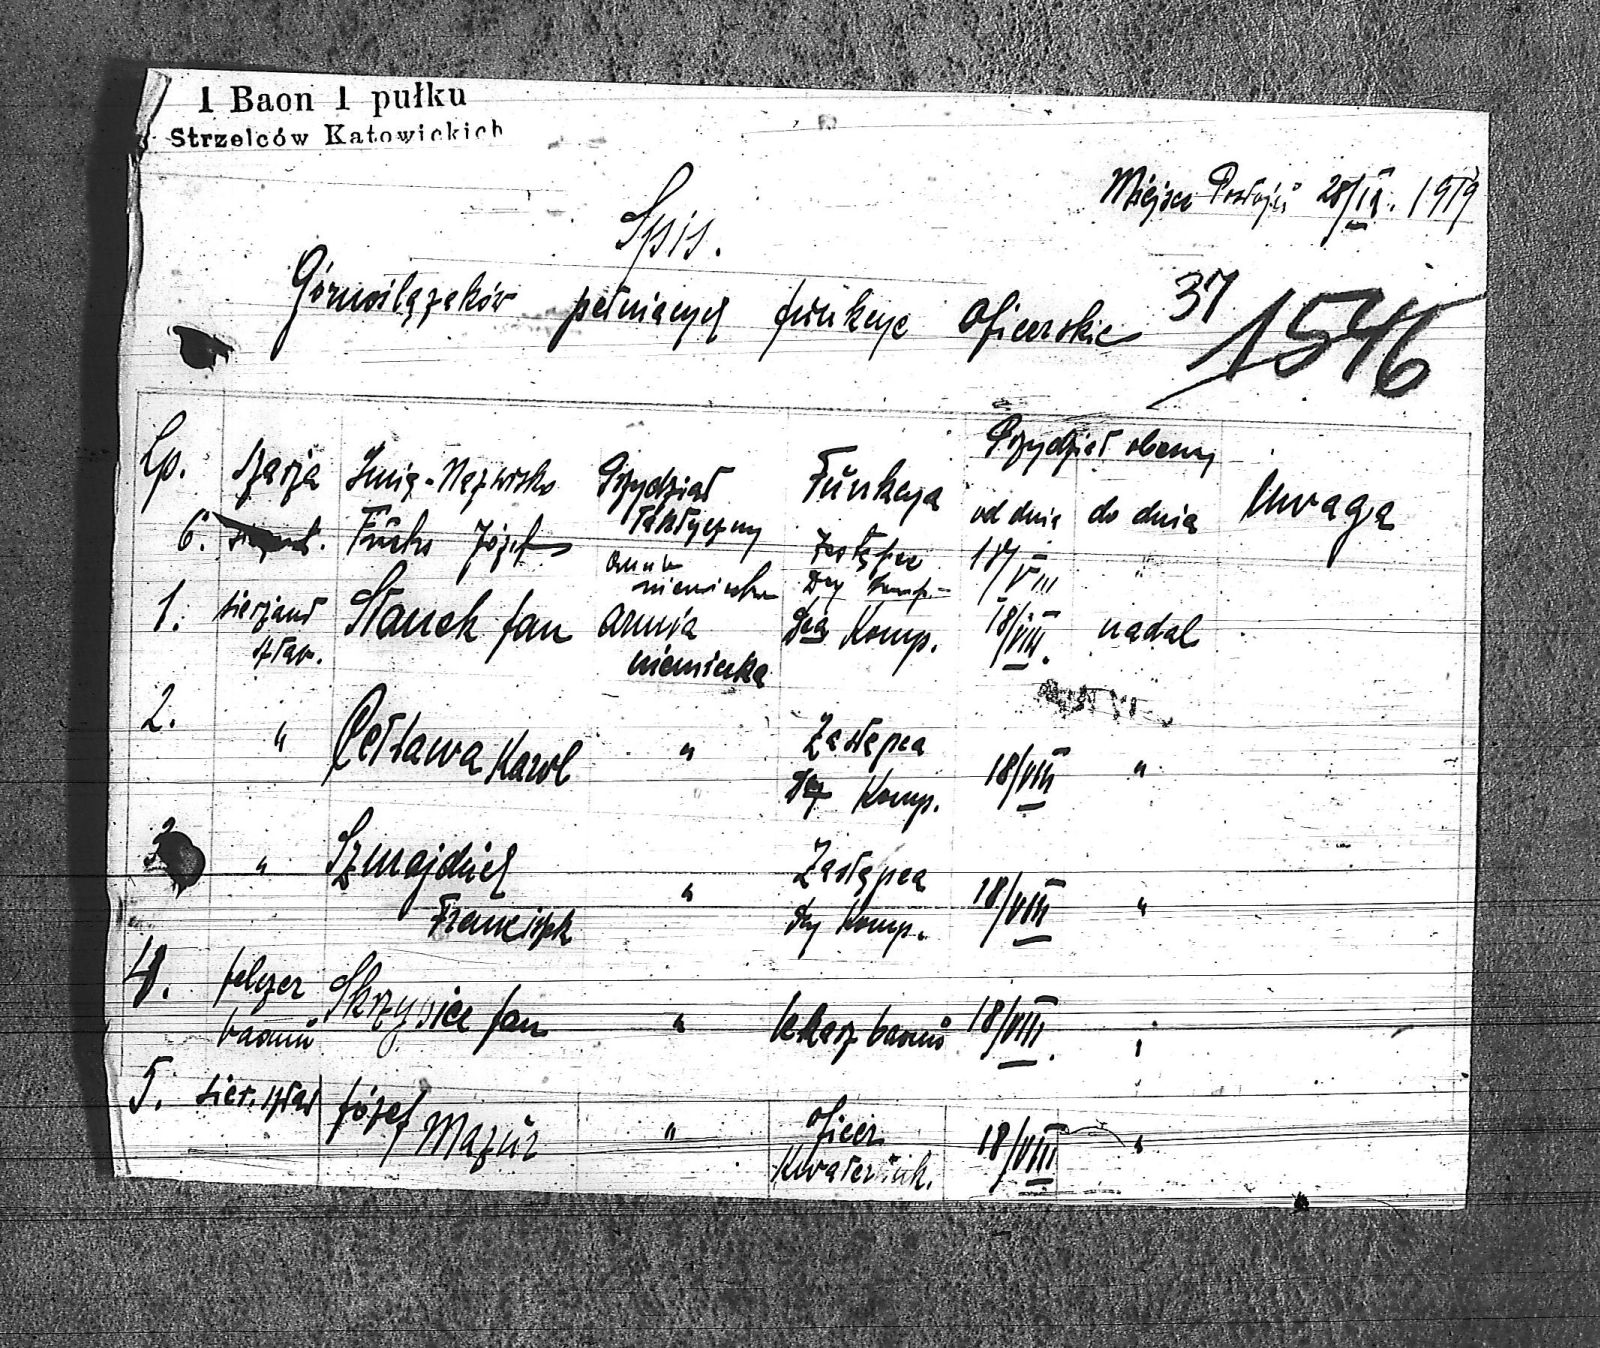 1 Baon 1 pułku
Strzelców Katowickich
Miejsce Postoju 28/IX. 1919
Spis.
Górnoślązaków pełniących funkcye oficerskie
37
1546
Lp. szarża Imię-Nazwisko Przydział taktyczny Funkcya Przydział obecny od dnia do dnia Uwaga
6. sierżant. Fuchs Józef armia niemiecka Zastępca Dcy Komp. 17/VIII "
1. sierżant sztab. Stanek Jan armia niemiecka Dca Komp. 18/VIII. nadal
2. " Karol " Zastępca Dcy Komp. 18/VIII "
3 " Szmajduch Franciszek " Zastępca Dcy Komp. 18/VIII "
4. felczer baonu Jan " lekarz baonu 18/VIII. "
5. sier. sztab Józef Mazur " oficer Kwaterunk. 18/VIII "